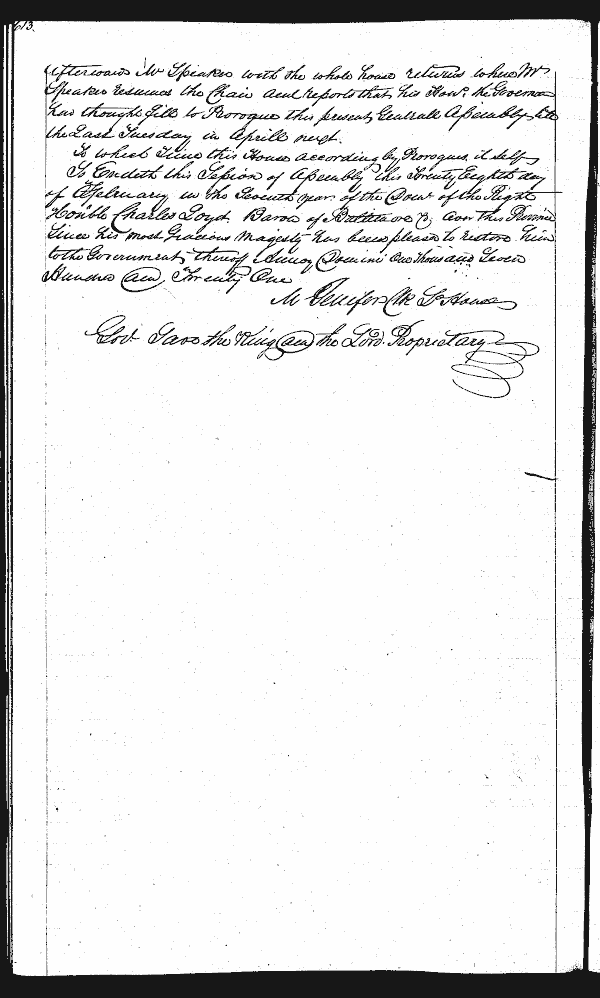 613.
Afterwards Mr Speaker with the whole house returns where Mr
Speaker resumes the Chair and reports that his Honr. the Governor
has thought fitt to Prorogue this present Generall Assembly till
the Last Tuesday in Aprill next.
To which Time this House accordingly Prorogues it self
So Endeth this Session of Assembly this Twenty Eighth day
of February in the Seventh year of the Domr of the Right
Honble Charles Loyd Baron of Baltimore &c over this Province
Since his most Gracious Magesty has been pleased to restore him
to the Government thereof Annoq Domini One thousand Seven
Hundred and Twenty One
M Jenifer Clk Lr House
God Save the King and the Lord Proprietary